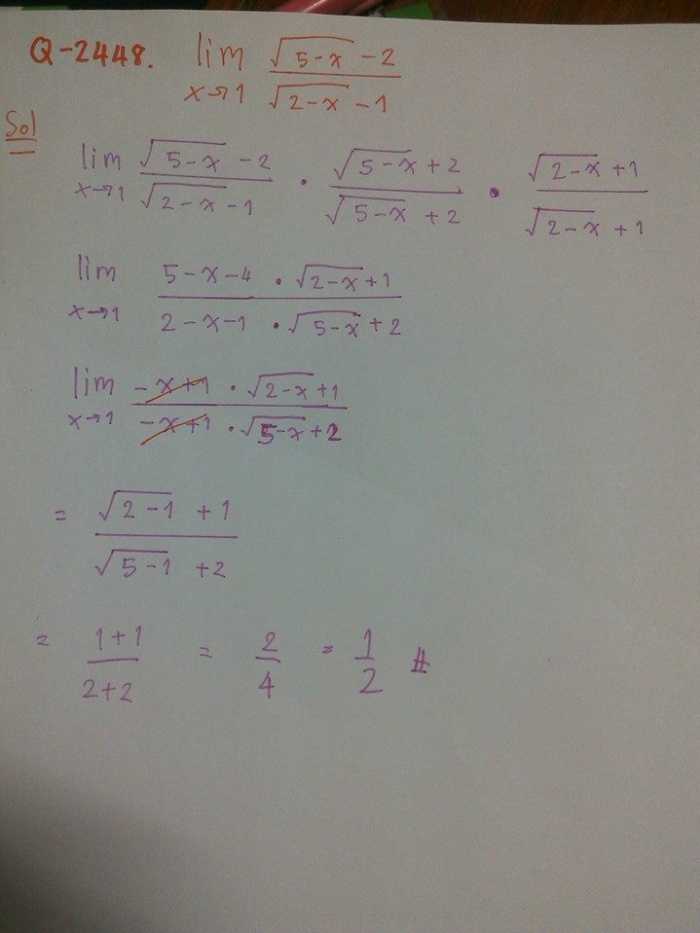 Q-2448. lim x→1 (√(5-x) -2)/(√(2-x) -1)
Sol
lim x→1 (√(5-x) -2)/(√(2-x) -1) · (√(5-x) +2)/(√(5-x) +2) · (√(2-x) +1)/(√(2-x) +1)
lim x→1 (5-x-4 · √(2-x) +1)/(2-x-1 · √(5-x) +2)
lim x→1 (-x+1 · √(2-x) +1)/(-x+1 · √(5-x) +2)
= (√(2-1) +1)/(√(5-1) +2)
= (1+1)/(2+2) = 2/4 = 1/2 #